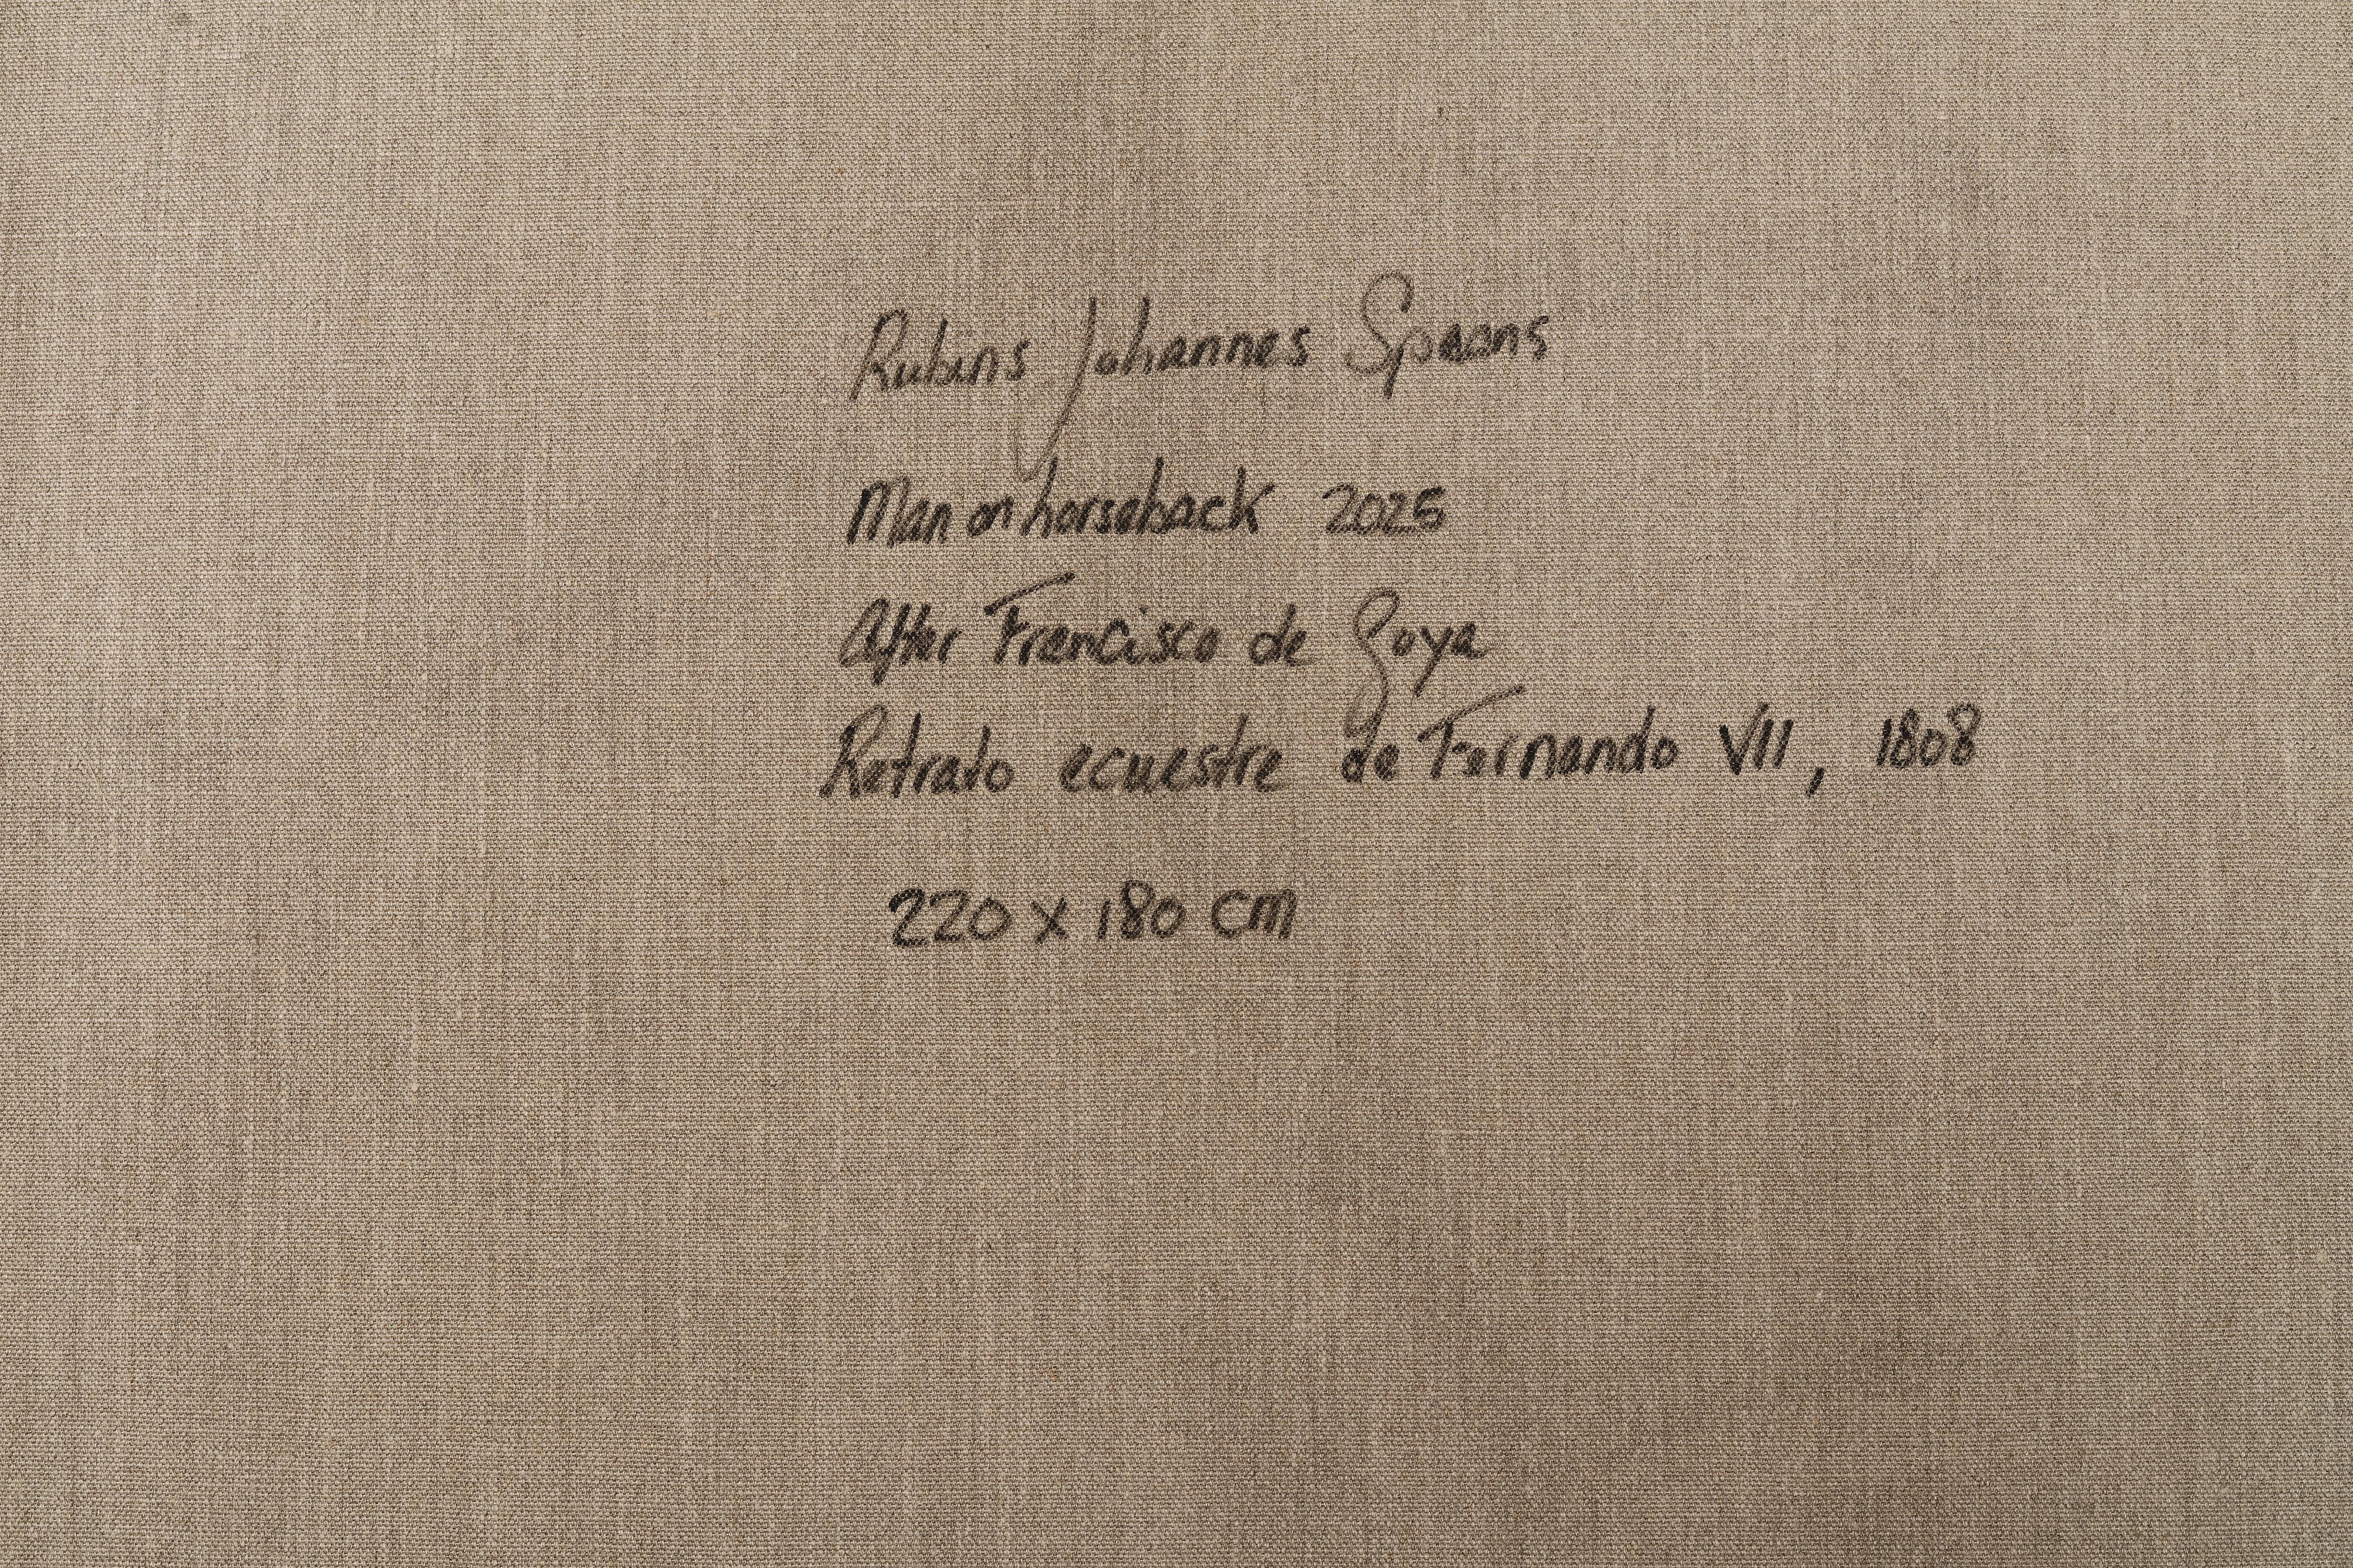 Rubins Johannes Spaans
Man on horseback 2025
After Francisco de Goya
Retrato ecuestre de Fernando VII, 1808
220 x 180 cm